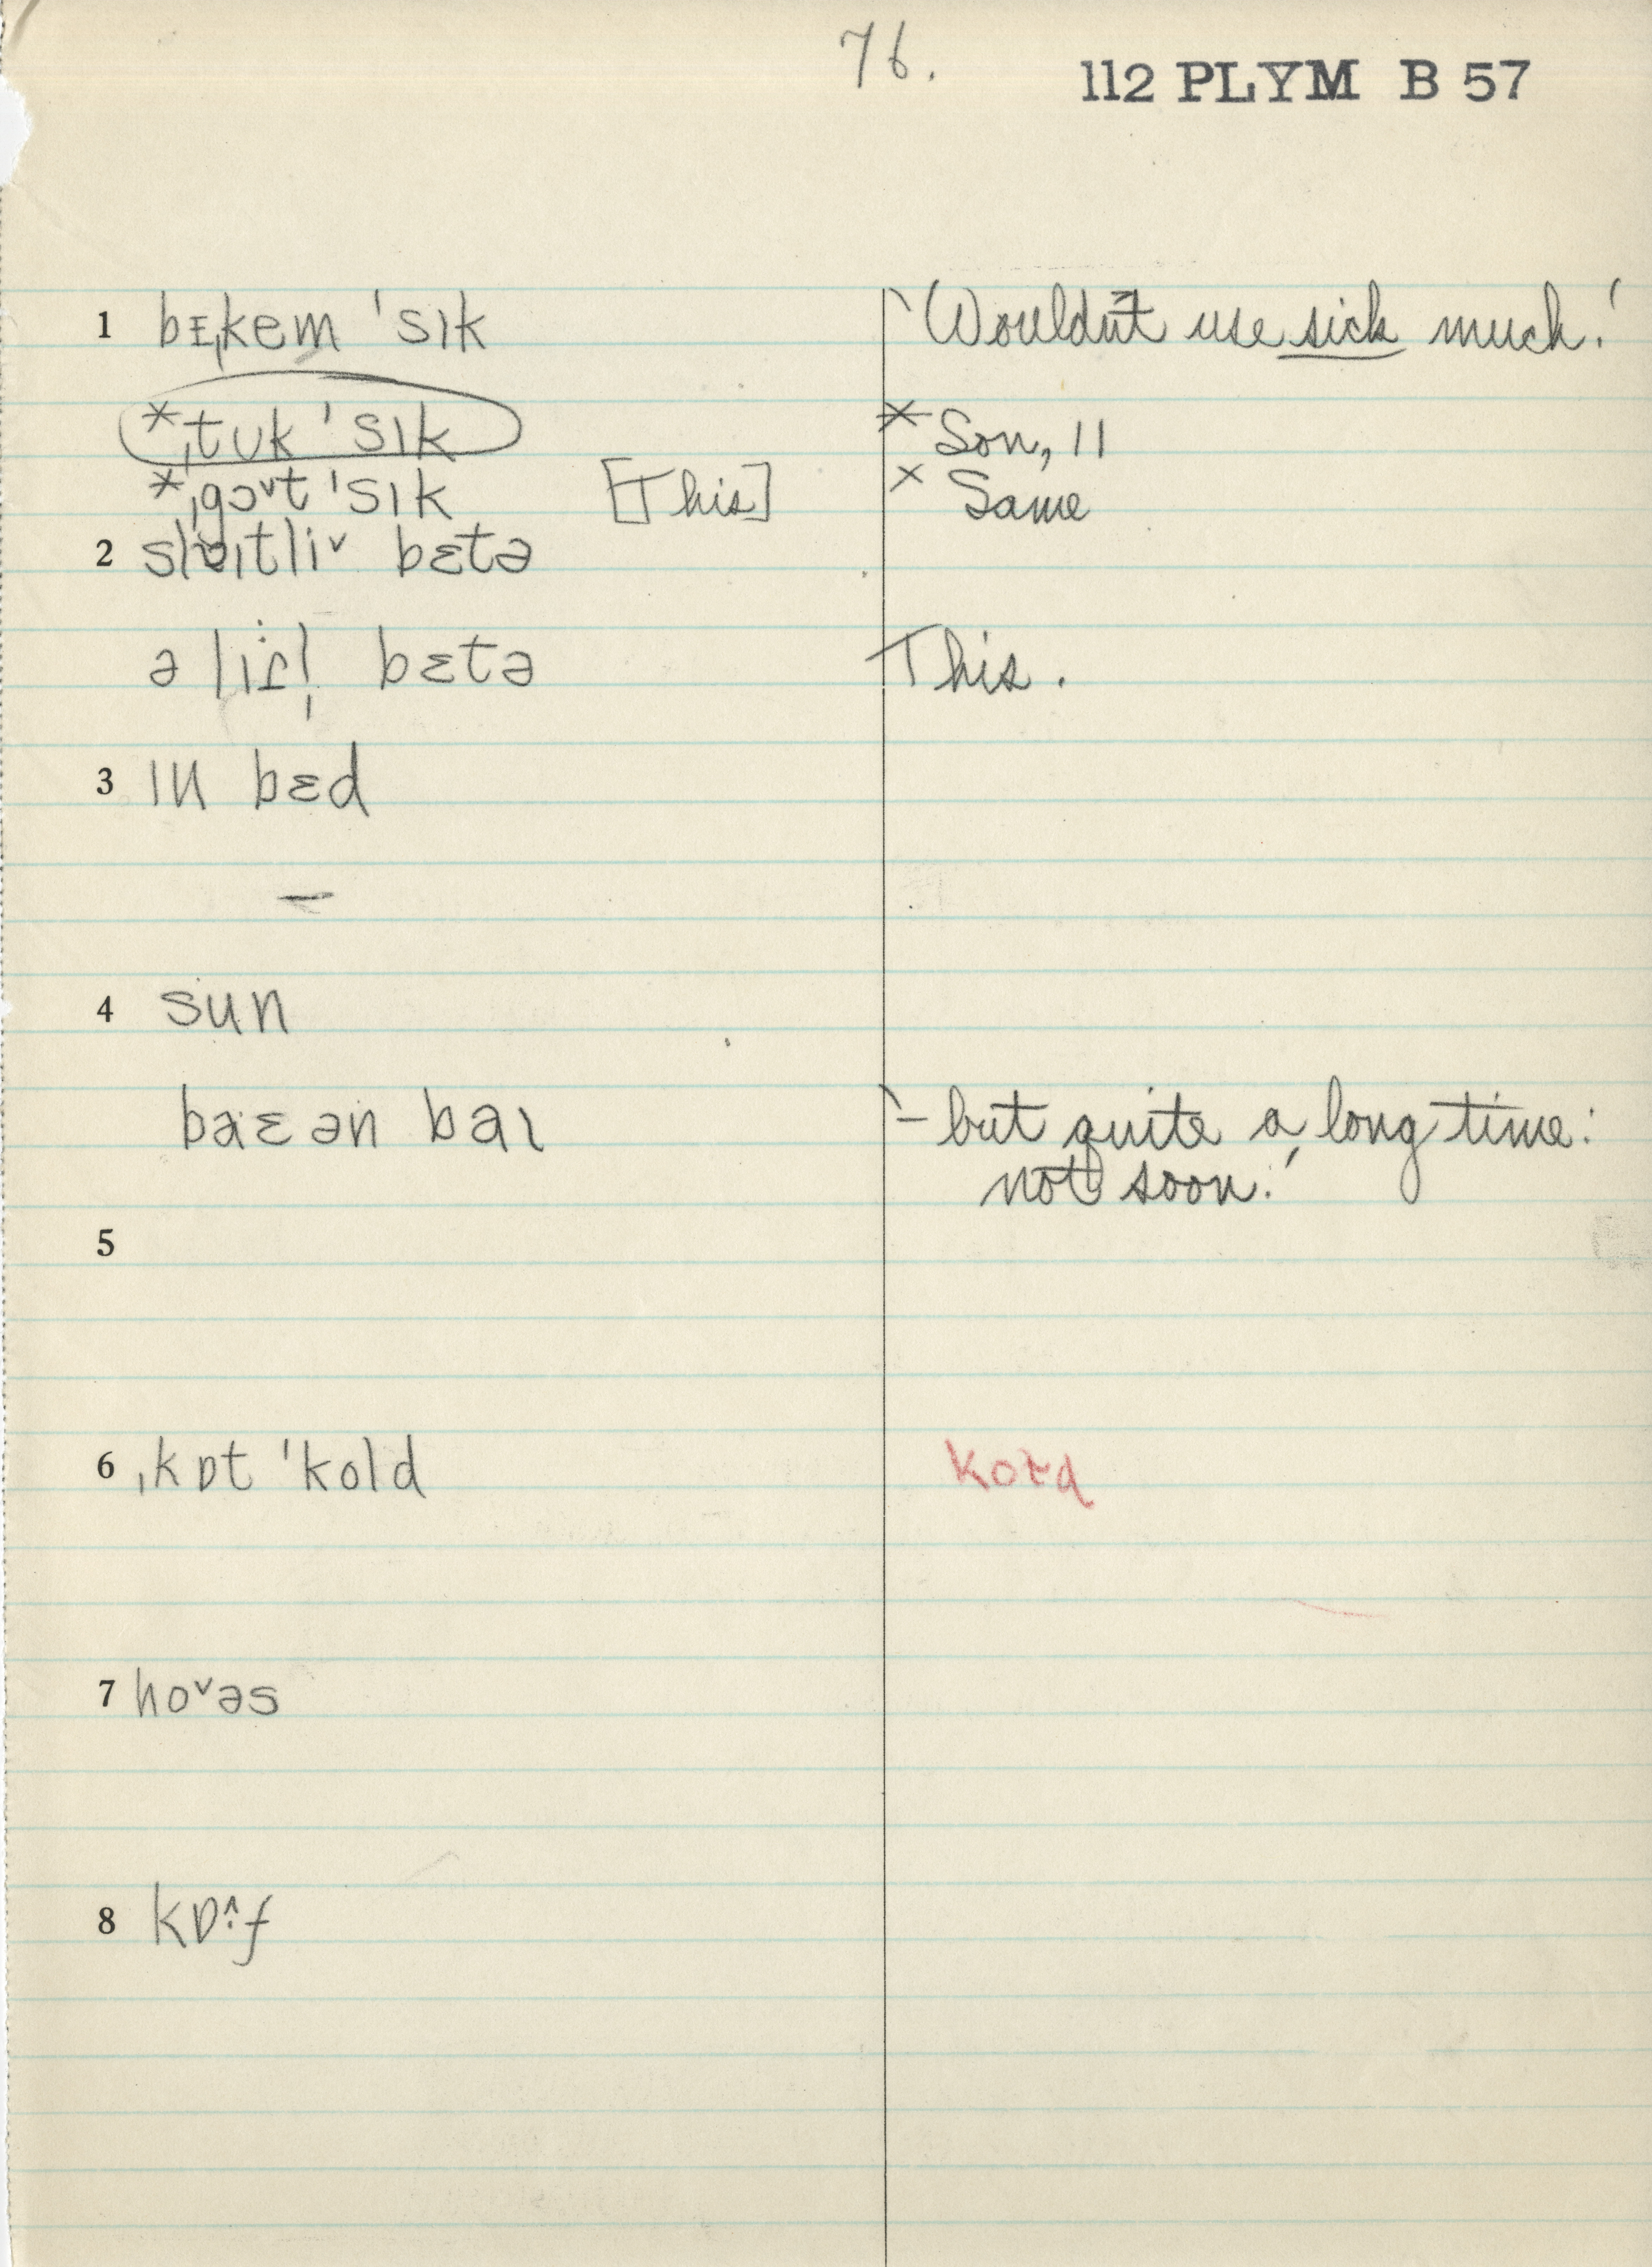 76.
112 PLYM B 57
1 bɪˌkem ˈsɪk 'Wouldn't use sick much.'
*ˌtʊk ˈsɪk × Son, 11
*ˌgɔ˅t ˈsɪk [This] × Same
2 bɛtə
ə bɛtə This.
3 ɪn bɛd
–
4 sun
ən baɪ '– but quite a long time:
not soon.'
5
6 ˌkɒt ˈkold
7 ho˅əs
8 kɒ˄ːf